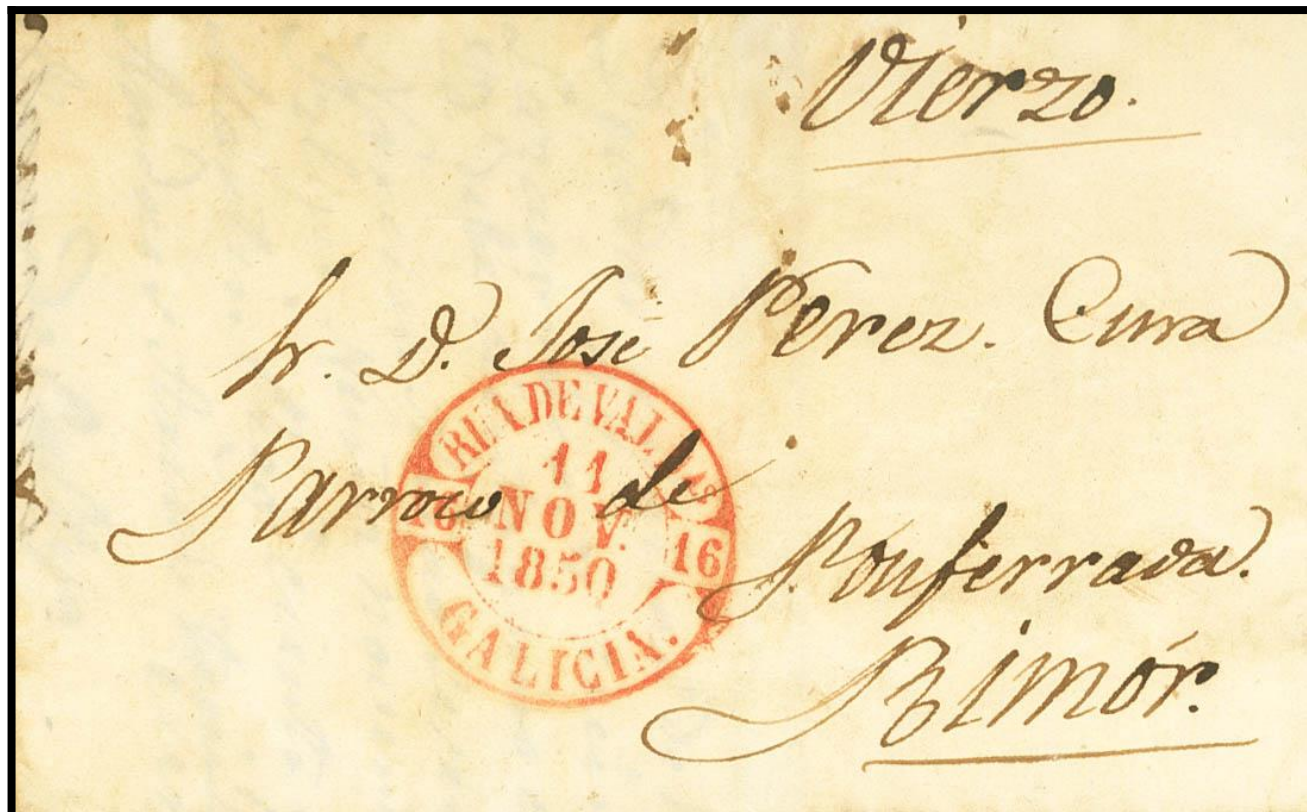 Vierzo.
Sr. D. José Perez. Cura
Parroco de
Ponferrada.
Rimór.
RUA DE VALD
16
11
NOV.
1850
16
GALICIA.